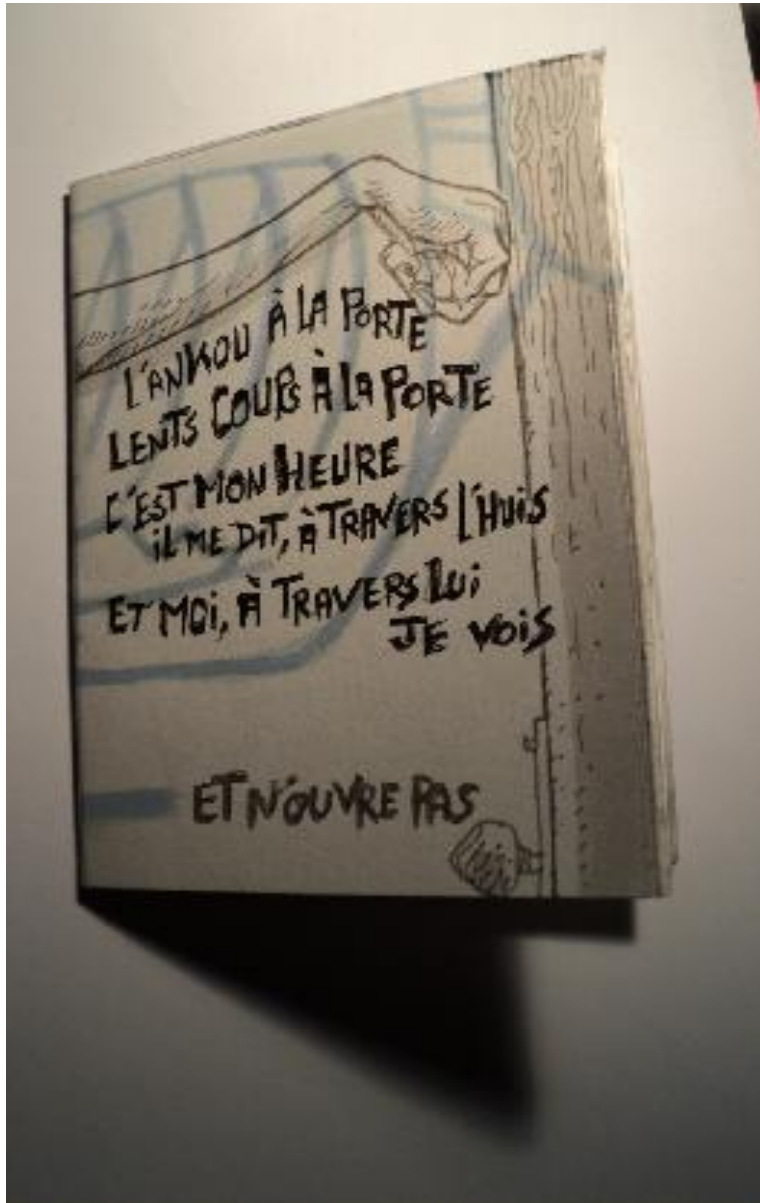 L'ANKOU À LA PORTE
LENTS COUPS À LA PORTE
C'EST MON HEURE
iL ME DiT, À TRAVERS L'HUiS
ET MOi, À TRAVERS LUi
JE VOiS
ET N'OUVRE PAS